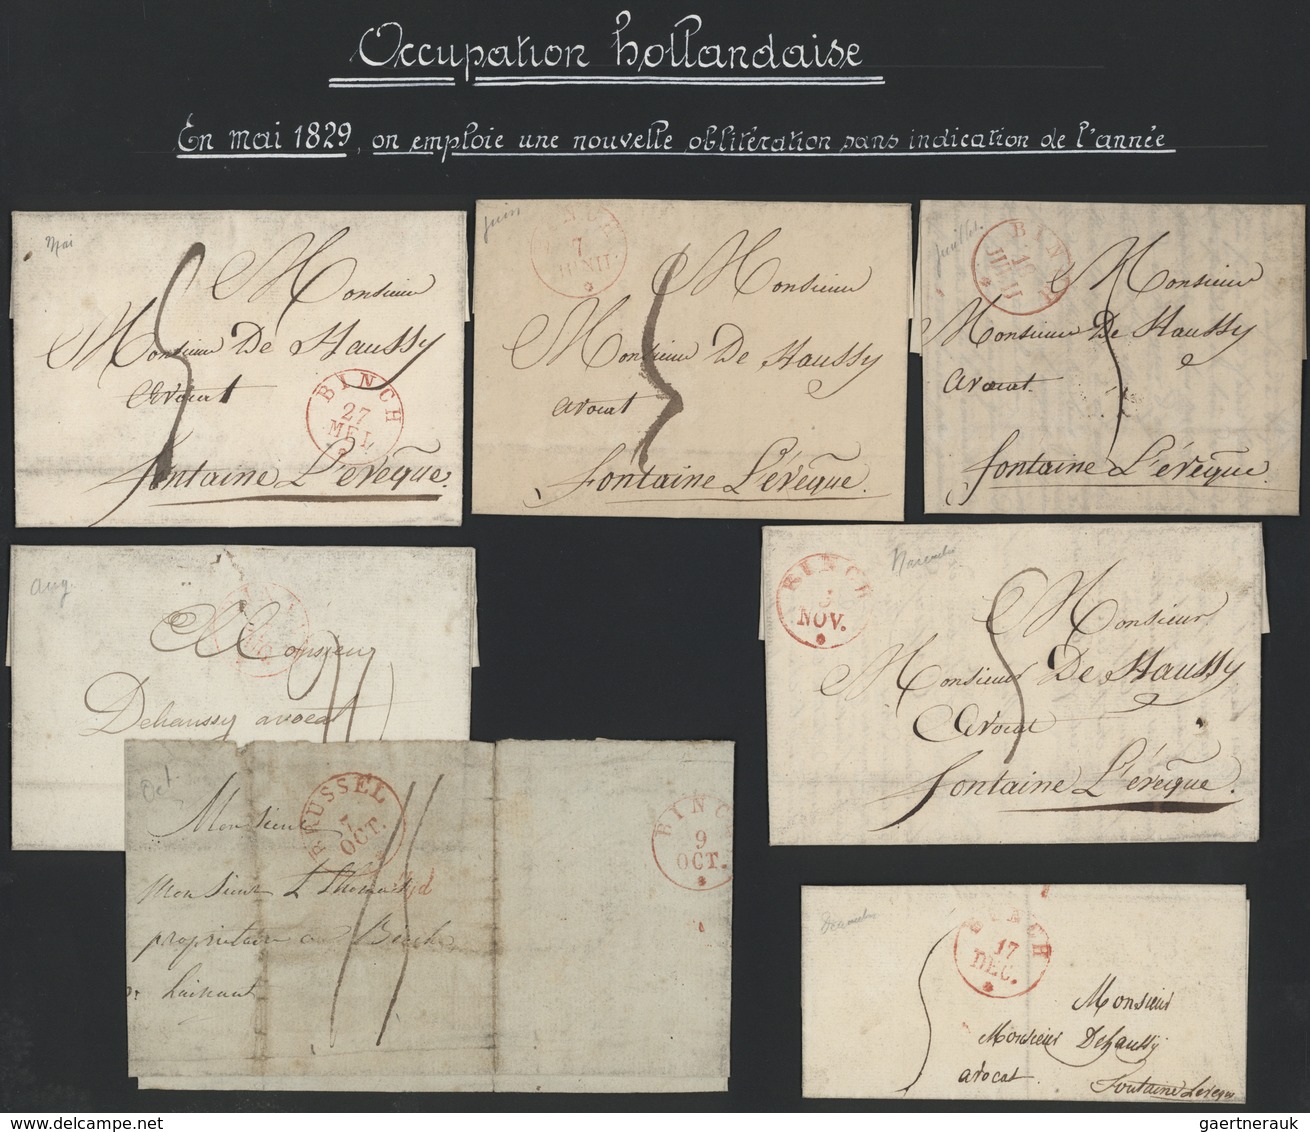 Occupation hollandaise
En mai 1829, on emploie une nouvelle oblitération sans indication de l'année
Mai
Monsieur
Monsieur De Haussy
Avocat
BINCH
27
MEI.
fontaine L'évêque.
Juin
7
JUNIJ.
Monsieur
Monsieur De Haussy
Avocat
Fontaine L'évêque.
Juillet.
BINCH
JULIJ
Monsieur
Monsieur De Haussy
Avocat.
fontaine L'évêque.
Aug.
Monsieur
Dehaussy avocat
Novembre
BINCH
NOV.
Monsieur
Monsieur De Haussy
Avocat
Fontaine L'évêque.
Oct.
BRUSSEL
7
OCT.
BINC
9
OCT.
Monsieur
Monsieur L Thomas
propriétaire
hainaut
Decembre
BINCH
17
DEC.
Monsieur
Monsieur Dehaussy
avocat.
Fontaine Leveque
gaertnerauk @ delcampe.net